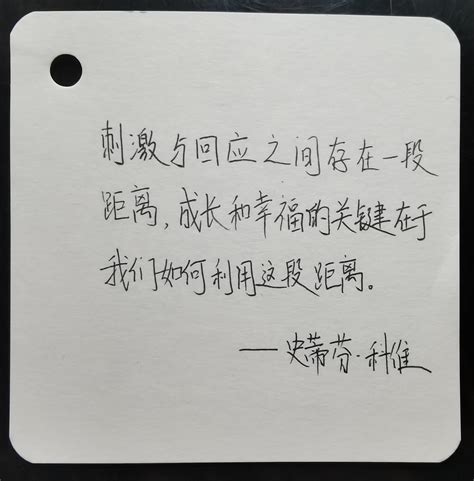 刺激与回应之间存在一段
距离,成长和幸福的关键在于
我们如何利用这段距离。
——史蒂芬·科维